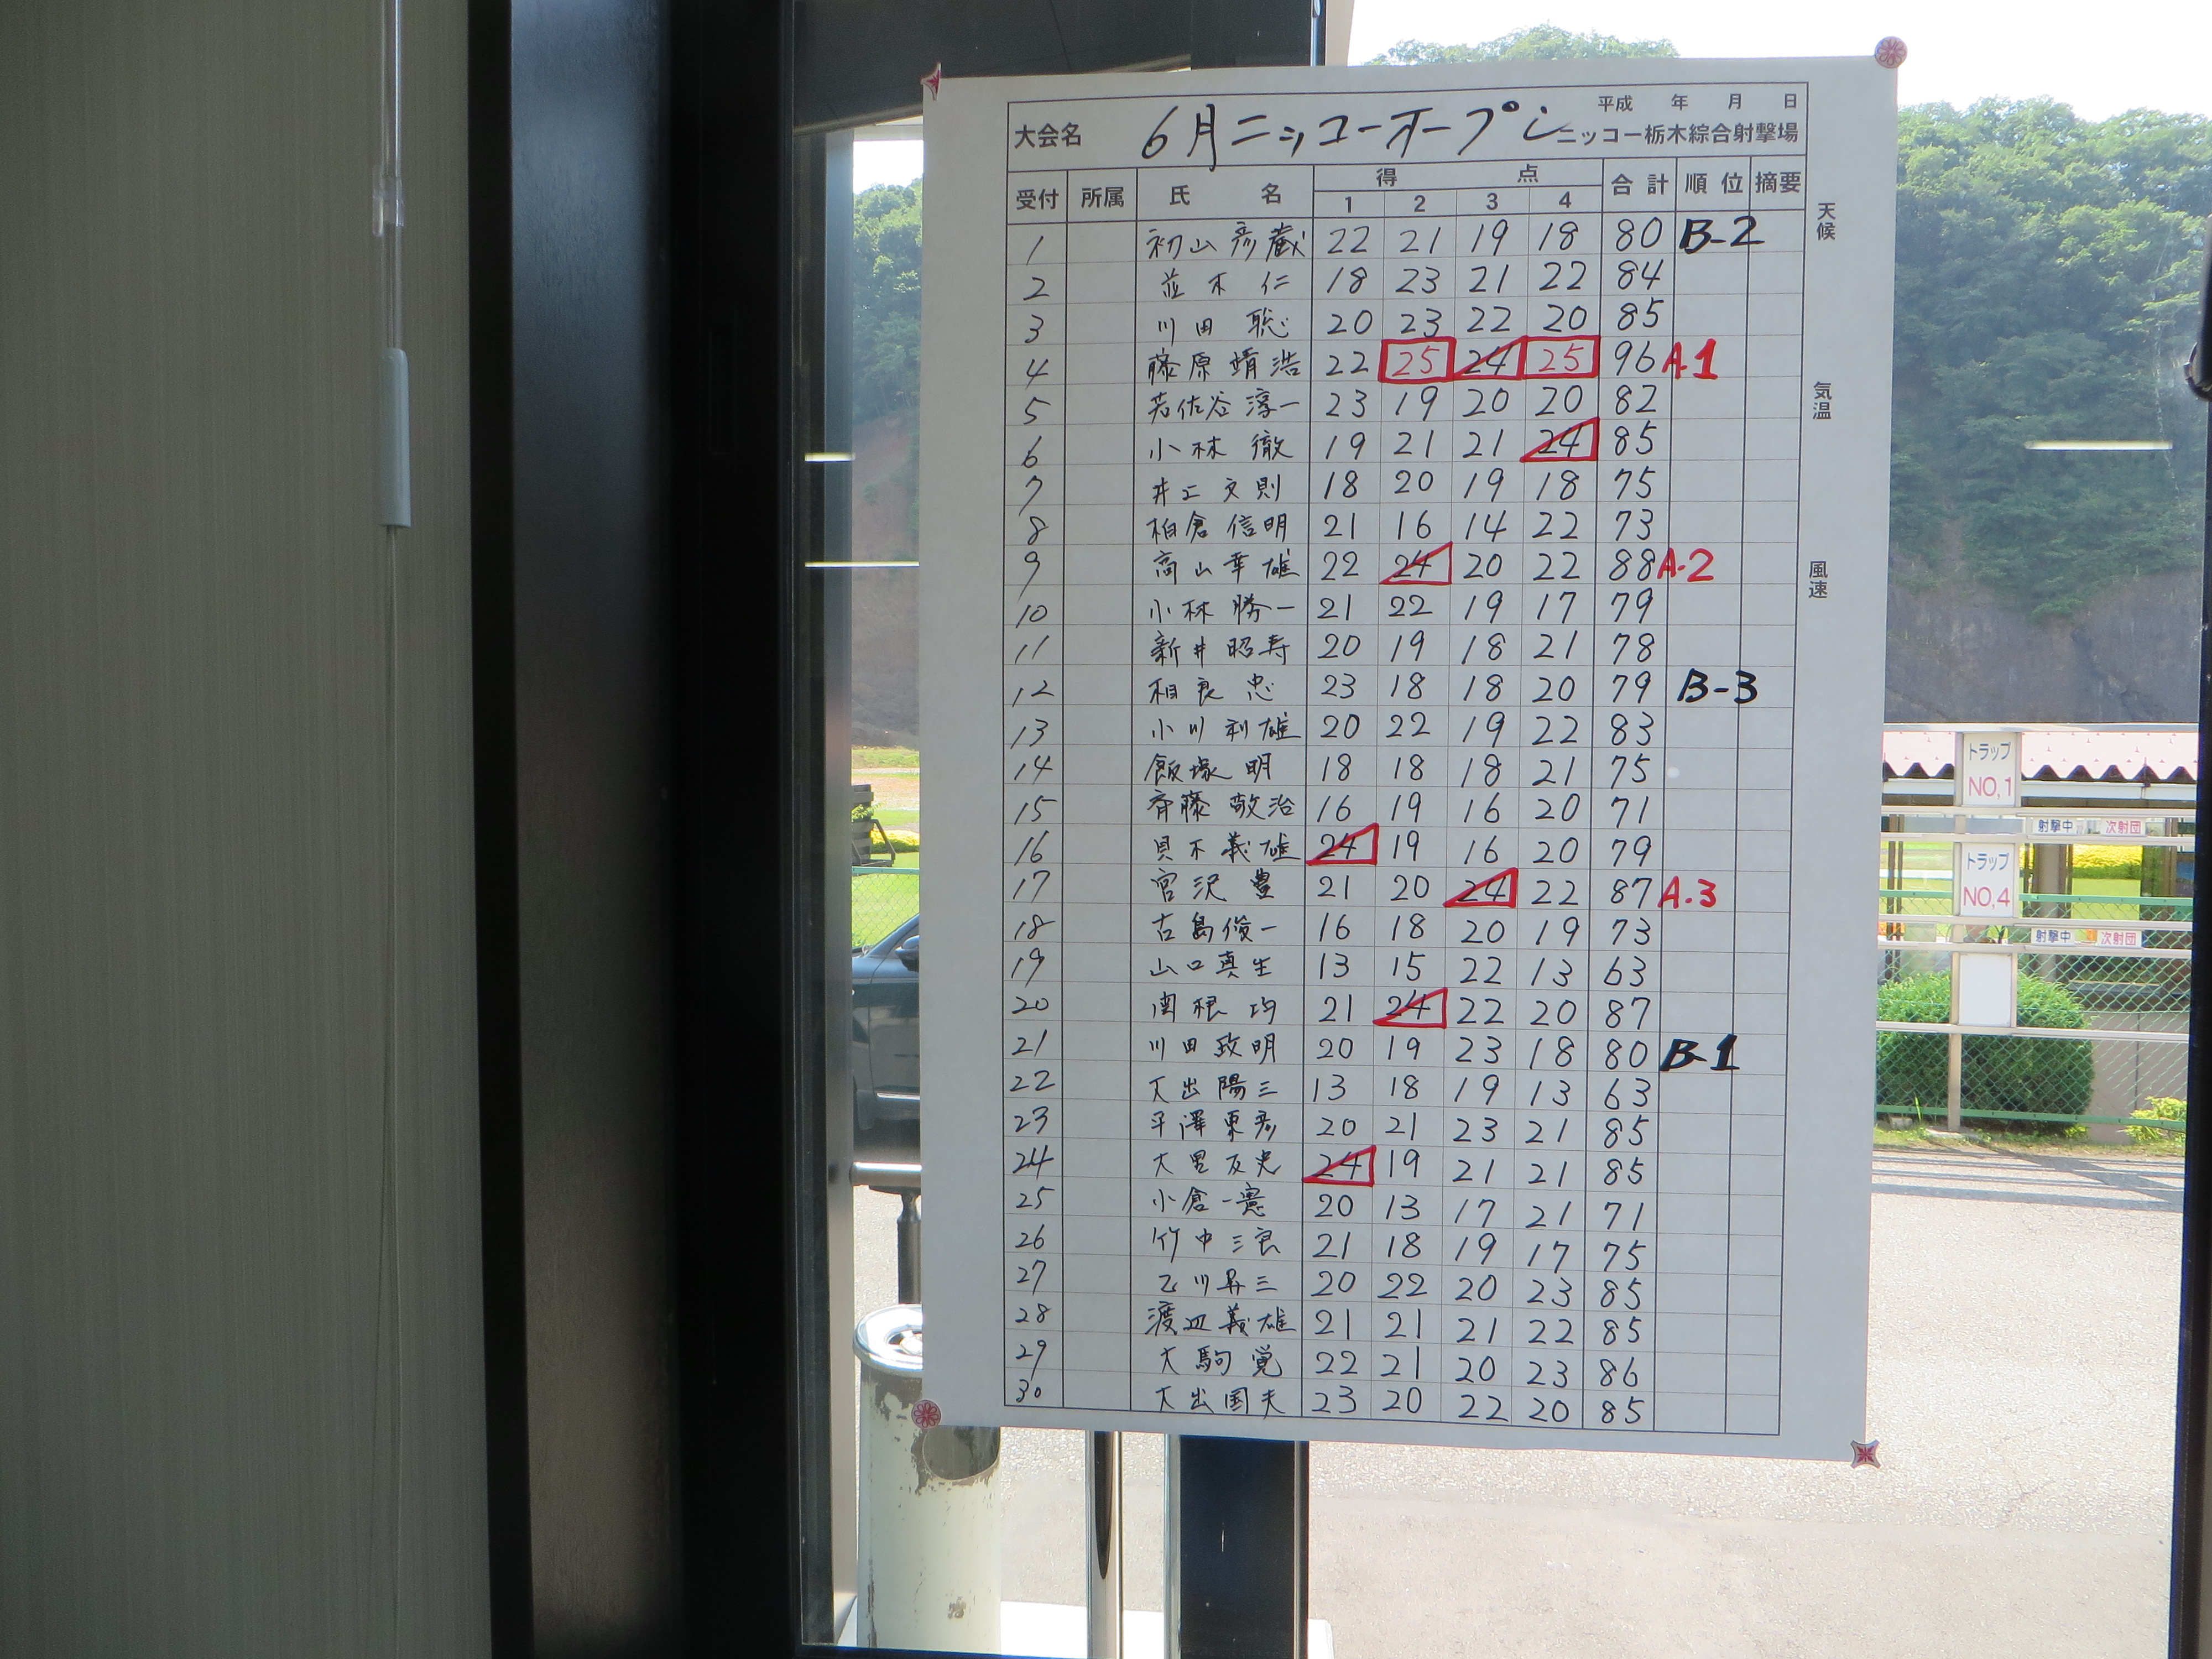 平成 年 月 日
大会名 6月ニッコーオープン ニッコー栃木綜合射撃場
受付 所属 氏 名 得 点 合計 順位 摘要
1 2 3 4
1 初山彦蔵 22 21 19 18 80 B-2
2 並木仁 18 23 21 22 84
3 川田聡 20 23 22 20 85
4 藤原靖浩 22 25 24 25 96 A-1
5 若佐谷淳一 23 19 20 20 82
6 小林徹 19 21 21 24 85
7 井上文則 18 20 19 18 75
8 柏倉信明 21 16 14 22 73
9 高山幸雄 22 24 20 22 88 A-2
10 小林勝一 21 22 19 17 79
11 新井昭寿 20 19 18 21 78
12 相良忠 23 18 18 20 79 B-3
13 小川利雄 20 22 19 22 83
14 飯塚明 18 18 18 21 75
15 斉藤敬治 16 19 16 20 71
16 義雄 24 19 16 20 79
17 宮沢豊 21 20 24 22 87 A-3
18 古島俊一 16 18 20 19 73
19 山口真生 13 15 22 13 63
20 関根均 21 24 22 20 87
21 川田政明 20 19 23 18 80 B-1
22 大出陽三 13 18 19 13 63
23 平澤東彦 20 21 23 21 85
24 24 19 21 21 85
25 小倉一憲 20 13 17 21 71
26 竹中三良 21 18 19 17 75
27 乙川昇三 20 22 20 23 85
28 渡辺義雄 21 21 21 22 85
29 大駒覚 22 21 20 23 86
30 大出国夫 23 20 22 20 85
天候
気温
風速
トラップ
NO,1
射撃中 次射団
トラップ
NO,4
射撃中 次射団